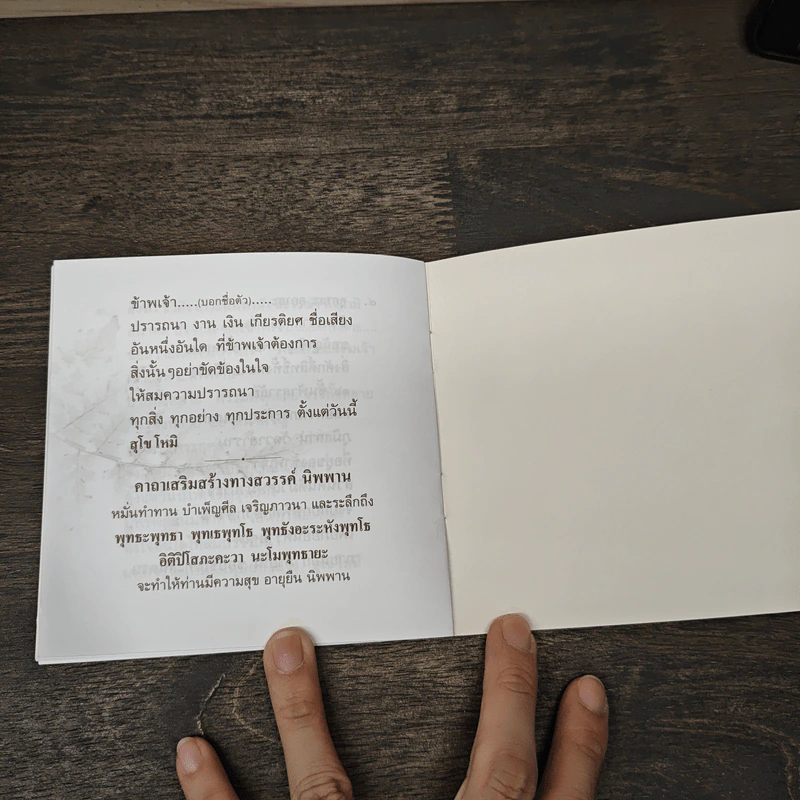 ข้าพเจ้า.....(บอกชื่อตัว).....
ปรารถนา งาน เงิน เกียรติยศ ชื่อเสียง
อันหนึ่งอันใด ที่ข้าพเจ้าต้องการ
สิ่งนั้นๆอย่าขัดข้องในใจ
ให้สมความปรารถนา
ทุกสิ่ง ทุกอย่าง ทุกประการ ตั้งแต่วันนี้
สุโข โหมิ
คาถาเสริมสร้างทางสวรรค์ นิพพาน
หมั่นทำทาน บำเพ็ญศีล เจริญภาวนา และระลึกถึง
พุทธะพุทธา พุทเธพุทโธ พุทธังอะระหังพุทโธ
อิติปิโสภะคะวา นะโมพุทธายะ
จะทำให้ท่านมีความสุข อายุยืน นิพพาน